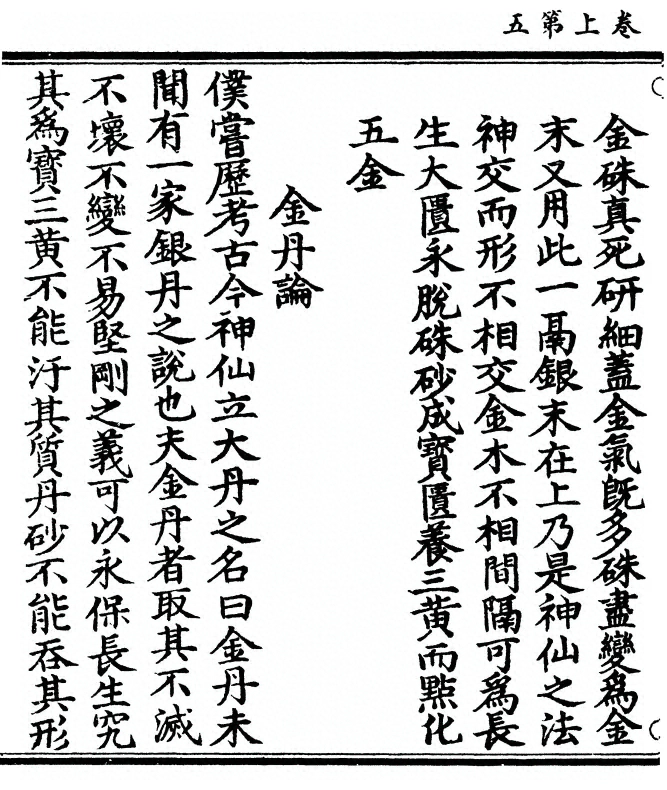 卷上第五
金硃真死研細蓋金氣旣多硃盡變爲金
末又用此一鬲銀末在上乃是神仙之法
神交而形不相交金木不相間隔可爲長
生大匱永脫硃砂成寶匱養三黄而點化
五金
金丹論
僕嘗歷考古今神仙立大丹之名曰金丹未
聞有一家銀丹之說也夫金丹者取其不滅
不壞不變不易堅剛之義可以永保長生究
其爲寶三黄不能汙其質丹砂不能吞其形